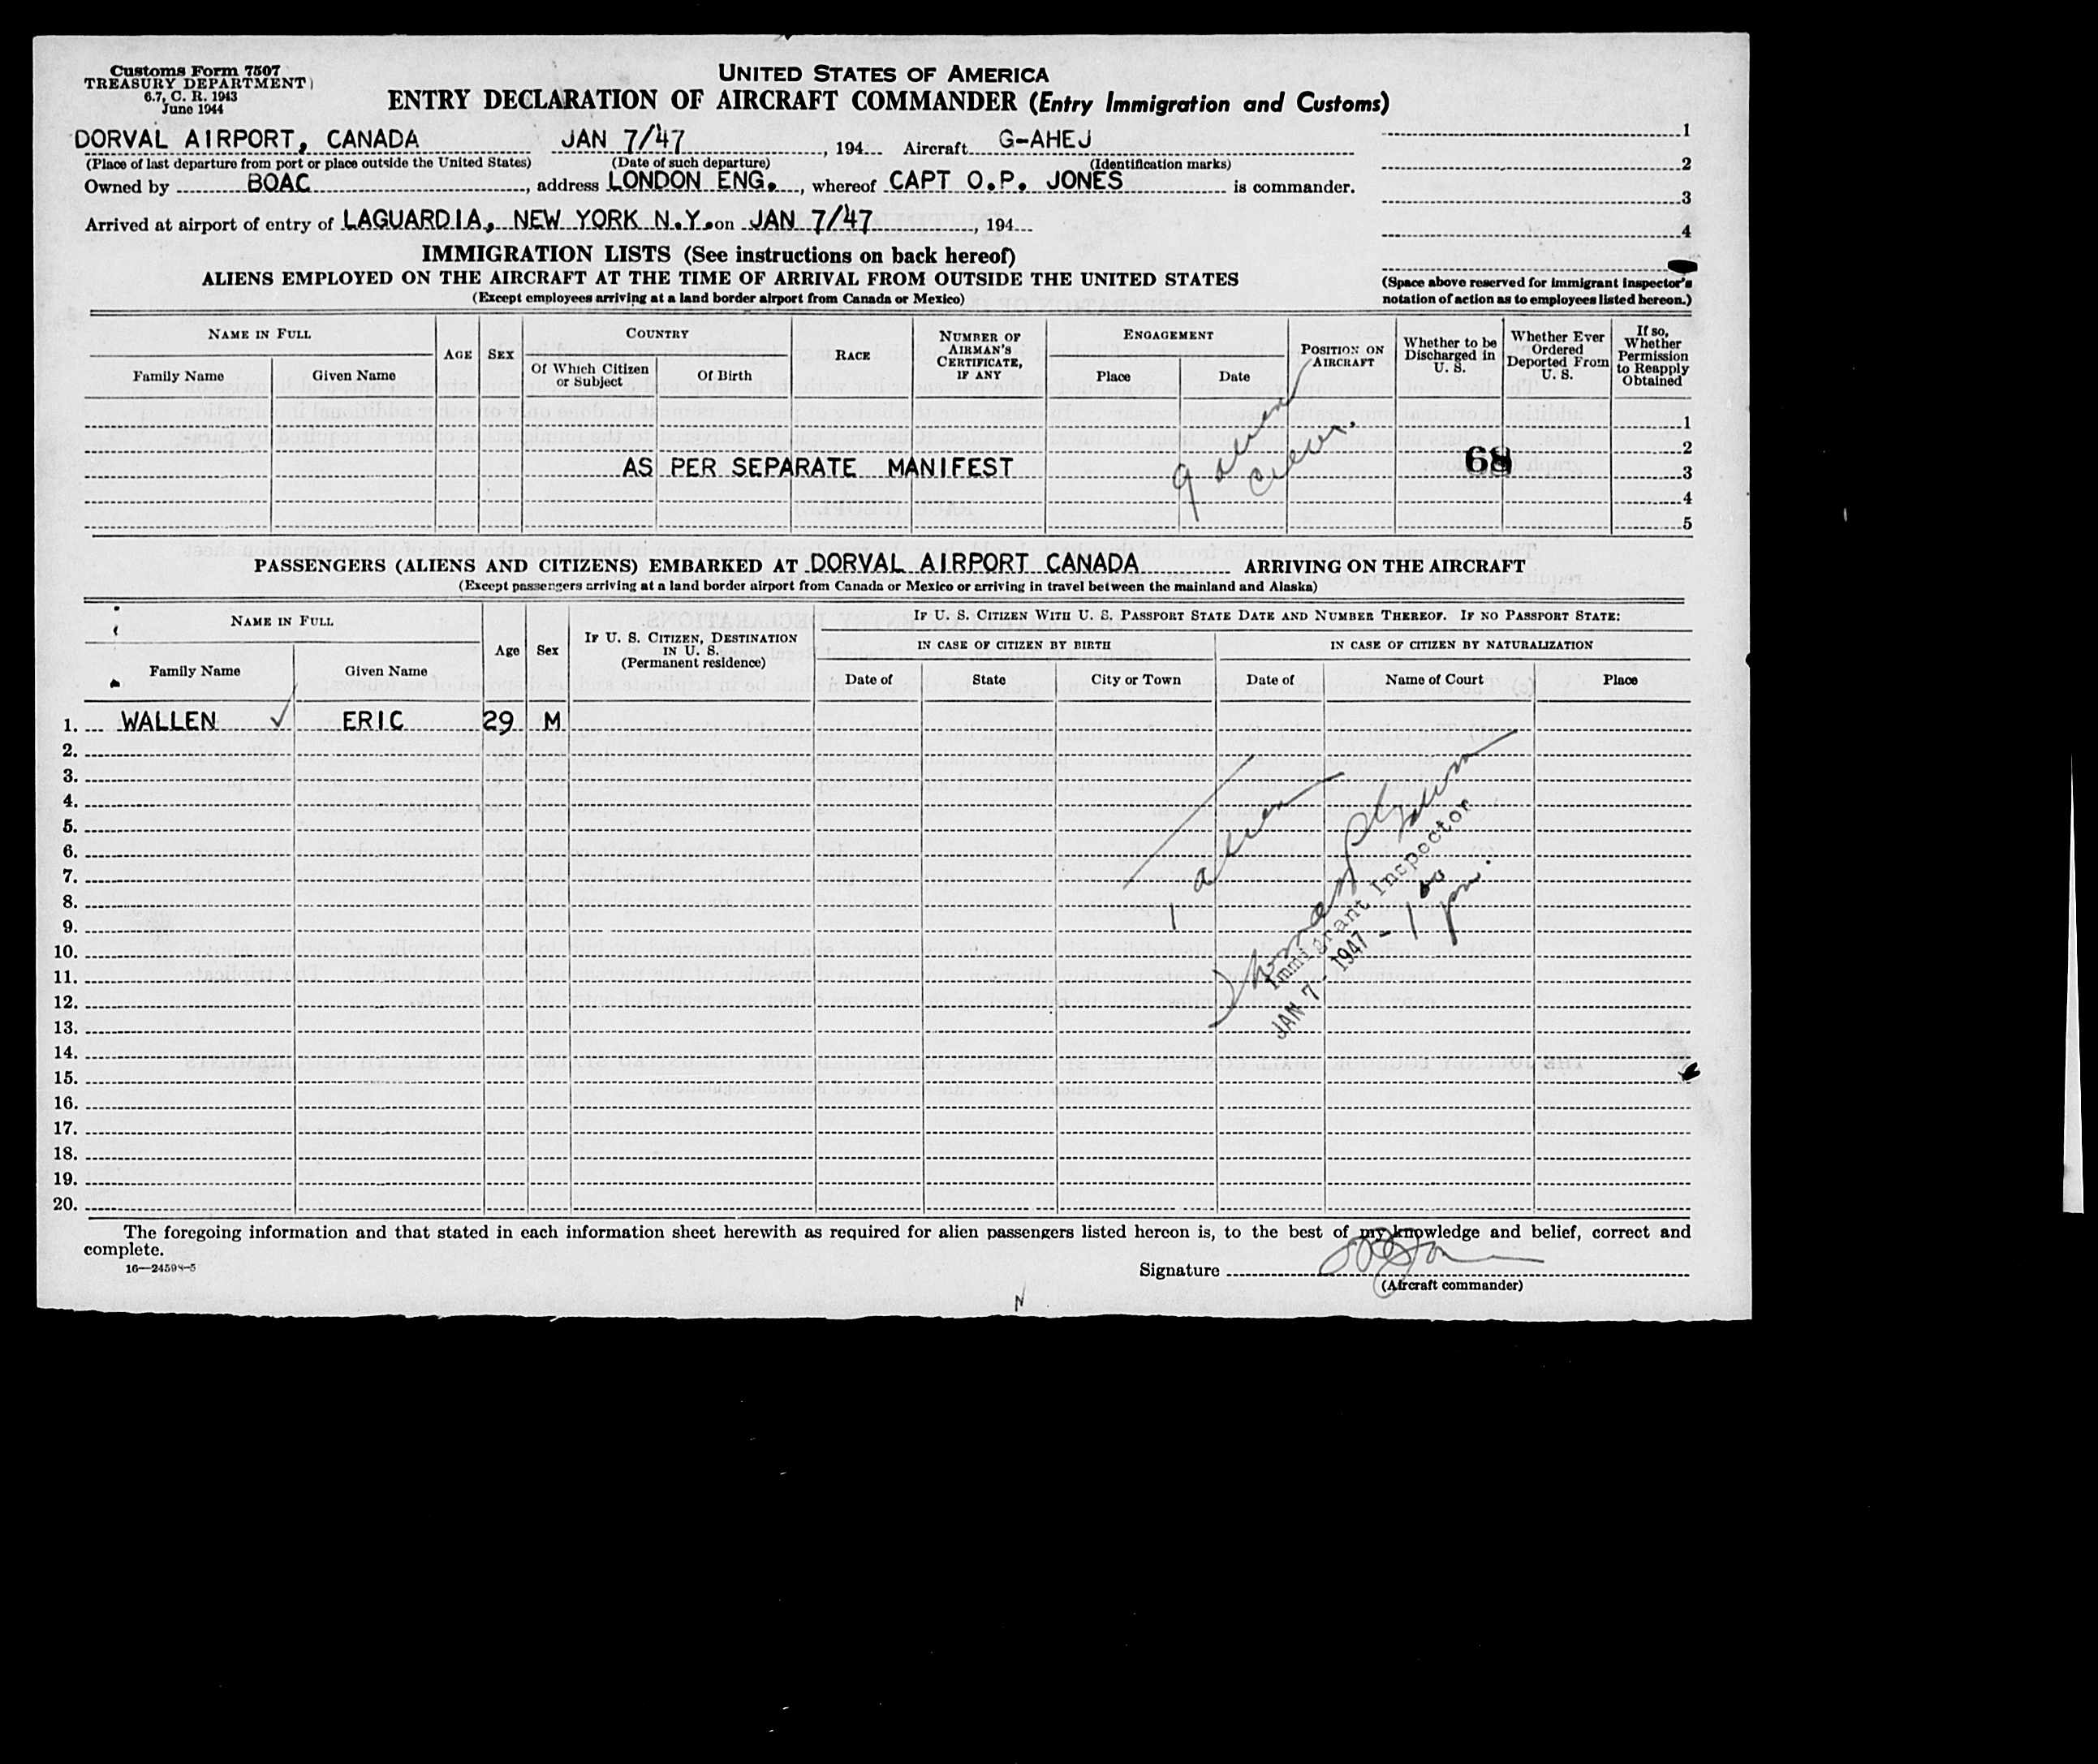 Customs Form 7507
TREASURY DEPARTMENT
6.7, C. R. 1943
June 1944
UNITED STATES OF AMERICA
ENTRY DECLARATION OF AIRCRAFT COMMANDER (Entry Immigration and Customs)
DORVAL AIRPORT, CANADA JAN 7/47, 194 Aircraft G-AHEJ
(Place of last departure from port or place outside the United States) (Date of such departure) (Identification marks)
Owned by BOAC, address LONDON ENG., whereof CAPT O.P. JONES is commander.
Arrived at airport of entry of LAGUARDIA, NEW YORK N.Y. on JAN 7/47, 194
1
2
3
4
(Space above reserved for immigrant inspector's
notation of action as to employees listed hereon.)
IMMIGRATION LISTS (See instructions on back hereof)
ALIENS EMPLOYED ON THE AIRCRAFT AT THE TIME OF ARRIVAL FROM OUTSIDE THE UNITED STATES
(Except employees arriving at a land border airport from Canada or Mexico)
NAME IN FULL
Family Name
Given Name
AGE
SEX
COUNTRY
Of Which Citizen
or Subject
Of Birth
RACE
NUMBER OF
AIRMAN'S
CERTIFICATE,
IF ANY
ENGAGEMENT
Place
Date
POSITION ON
AIRCRAFT
Whether to be
Discharged in
U. S.
Whether Ever
Ordered
Deported From
U. S.
If so,
Whether
Permission
to Reapply
Obtained
1
2
AS PER SEPARATE MANIFEST 9 alien crew. 68 3
4
5
PASSENGERS (ALIENS AND CITIZENS) EMBARKED AT DORVAL AIRPORT CANADA ARRIVING ON THE AIRCRAFT
(Except passengers arriving at a land border airport from Canada or Mexico or arriving in travel between the mainland and Alaska)
NAME IN FULL
Family Name
Given Name
Age
Sex
IF U. S. CITIZEN, DESTINATION
IN U. S.
(Permanent residence)
IF U. S. CITIZEN WITH U. S. PASSPORT STATE DATE AND NUMBER THEREOF. IF NO PASSPORT STATE:
IN CASE OF CITIZEN BY BIRTH
IN CASE OF CITIZEN BY NATURALIZATION
Date of
State
City or Town
Date of
Name of Court
Place
1. WALLEN ✓ ERIC 29 M
2.
3.
4.
5.
6.
7.
8.
9.
10.
11.
12.
13.
14.
15.
16.
17.
18.
19.
20.
1 alien
Immigrant Inspector
JAN 7 - 1947 - 1 00 pm.
The foregoing information and that stated in each information sheet herewith as required for alien passengers listed hereon is, to the best of my knowledge and belief, correct and
complete.
16—24598-5
Signature OP Jones
(Aircraft commander)
N